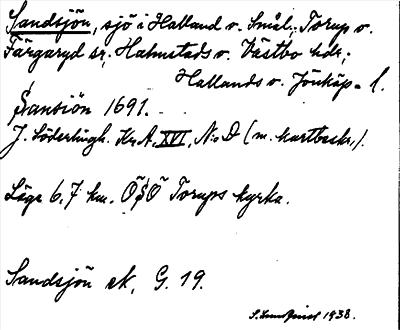 Sandsjön, sjö i Halland o. Smål. Torup o.
Färgaryd sr. Halmstads o. Västbo hdr;
Hallands o. Jönköp. l.
Sansiön 1691.
J. Söderlingh. Kr. A. XVI, N:o D (m. kartbeskr.).
Läge 6,7 km. ÖSÖ Torups kyrka.
Sandsjön ek, G. 19.
1938.